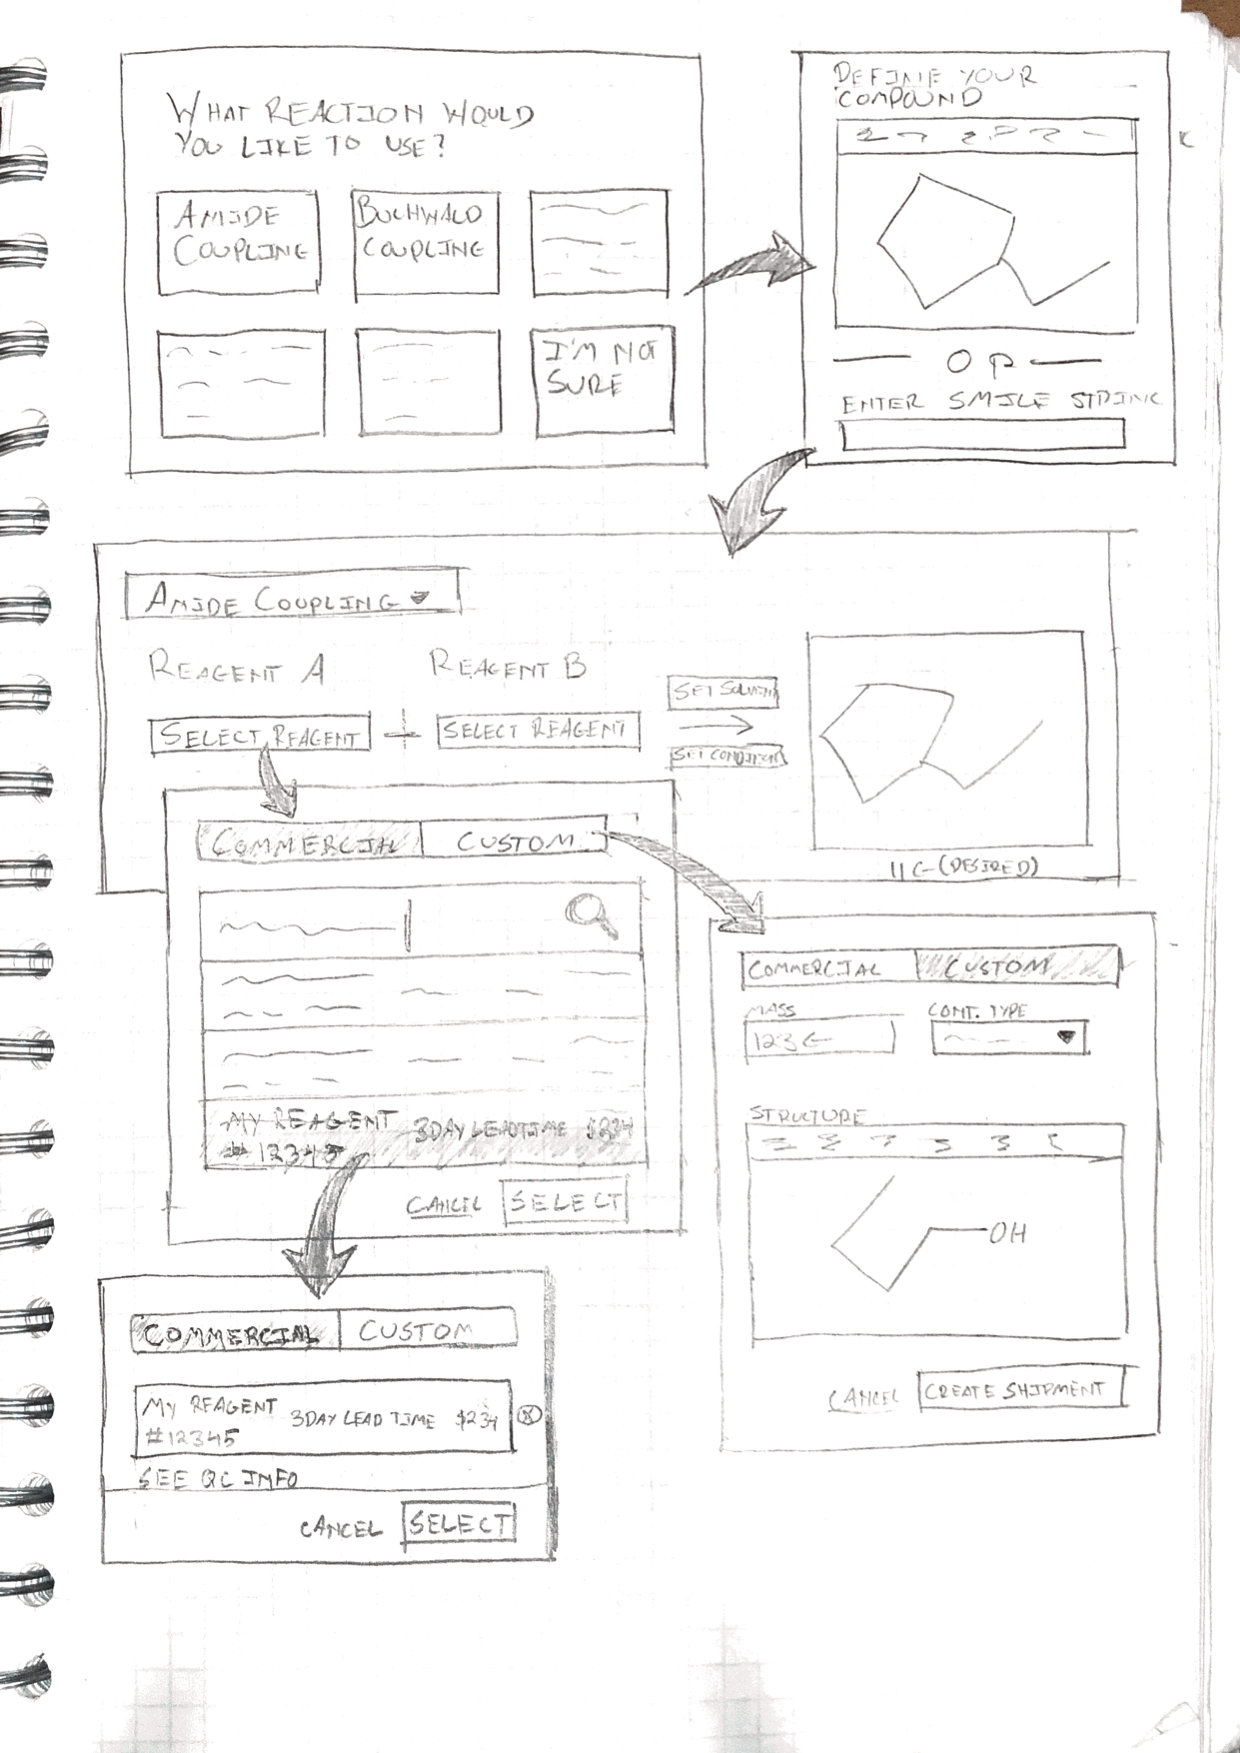 WHAT REACTION WOULD
YOU LIKE TO USE?
AMIDE
COUPLING
BUCHWALD
COUPLING
I'M NOT
SURE
DEFINE YOUR
COMPOUND
OR
ENTER SMILE STRING
AMIDE COUPLING
REAGENT A
SELECT REAGENT
+
REAGENT B
SELECT REAGENT
SET SOLVENT
SET CONDITIONS
(DESIRED)
COMMERCIAL
CUSTOM
MY REAGENT
#12345
3DAY LEADTIME
$234
CANCEL
SELECT
COMMERCIAL
CUSTOM
MASS
123G
CONT. TYPE
STRUCTURE
OH
CANCEL
CREATE SHIPMENT
COMMERCIAL
CUSTOM
MY REAGENT
#12345
3DAY LEAD TIME
$234
SEE QC INFO
CANCEL
SELECT